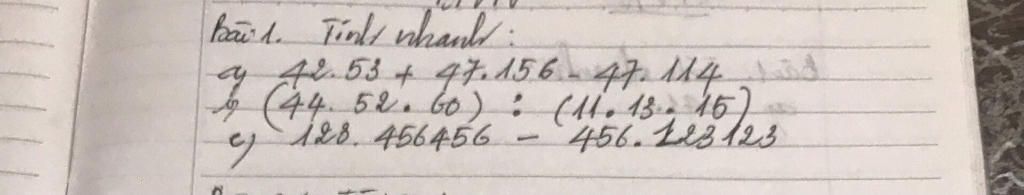 Bài 1. Tính nhanh:
a) 42.53 + 47.156 - 47.114
b) (44. 52. 60) : (11. 13. 15)
c) 123. 456456 - 456. 123123